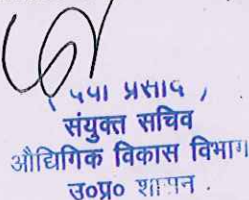 ( दया प्रसाद )
संयुक्त सचिव
औद्यिगिक विकास विभाग
उ०प्र० शासन .